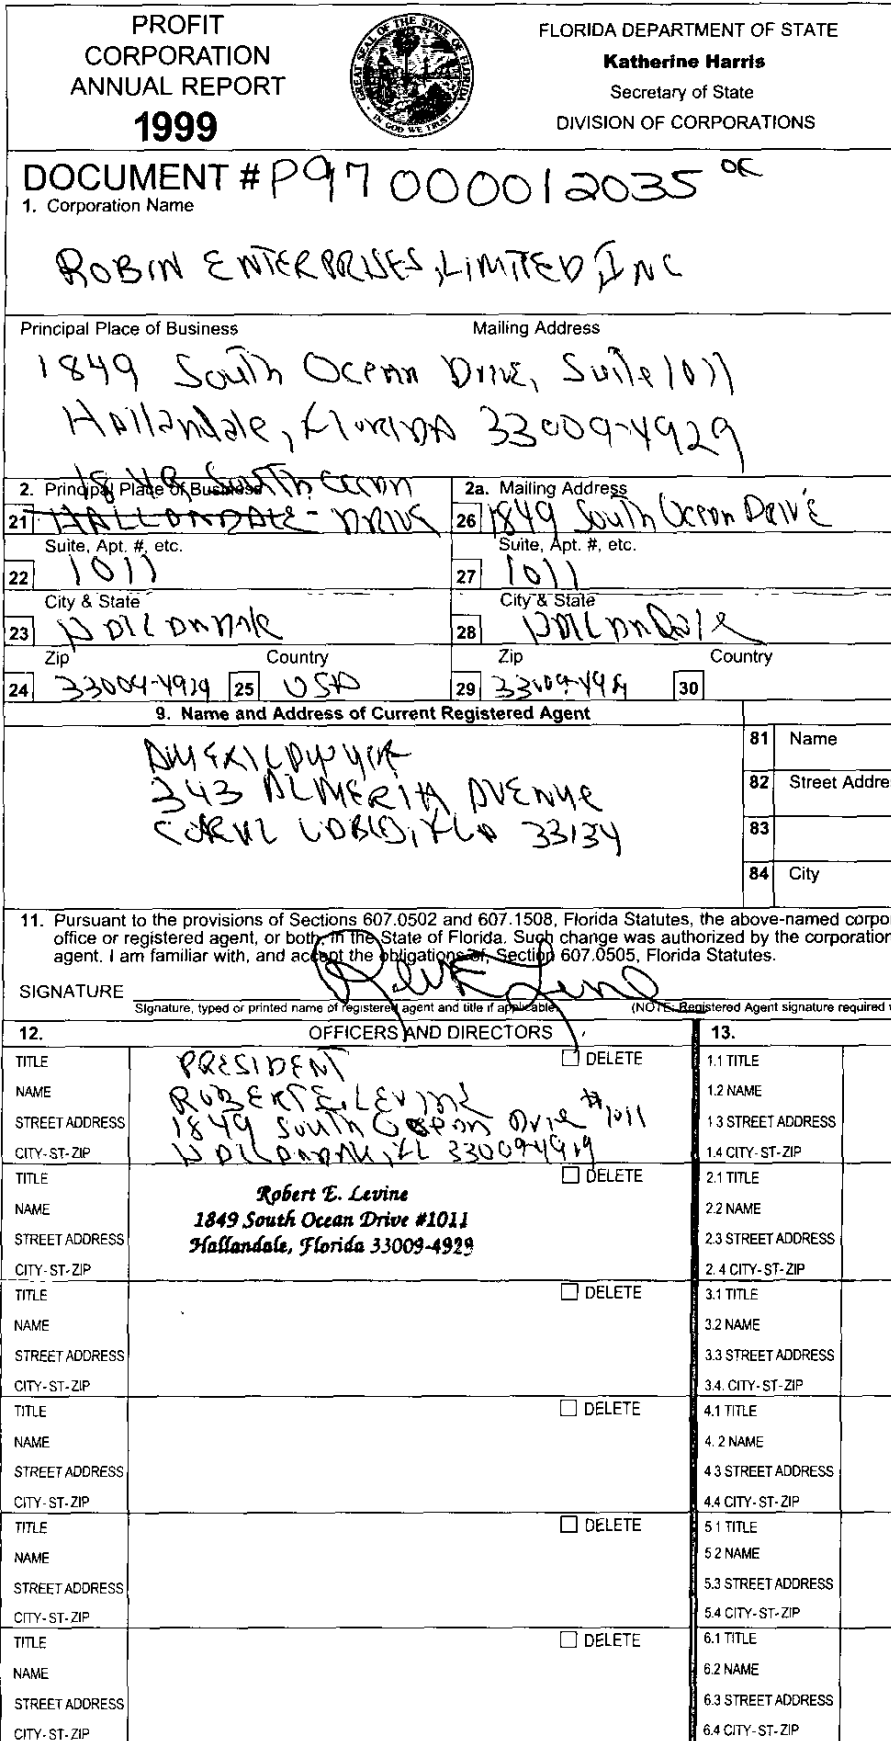 PROFIT
CORPORATION
ANNUAL REPORT
1999
GREAT SEAL OF THE STATE OF FLORIDA
IN GOD WE TRUST
FLORIDA DEPARTMENT OF STATE
Katherine Harris
Secretary of State
DIVISION OF CORPORATIONS
DOCUMENT # P97 000012035 OC
1. Corporation Name
ROBIN ENTERPRISES, LIMITED, INC
Principal Place of Business Mailing Address
1849 South Ocean Drive, Suite 1011
Hallandale, Florida 33009-4929
1849 South Ocean
2. Principal Place of Business 2a. Mailing Address
21 HALLANDALE - DRIVE 26 1849 South Ocean Drive
Suite, Apt. #, etc. Suite, Apt. #, etc.
22 1011 27 1011
City & State City & State
23 Hallandale 28 Hallandale
Zip Country Zip Country
24 33009-4929 25 USA 29 30
9. Name and Address of Current Registered Agent
81 Name
343 ALMERIA AVENUE
82 Street Addre
33134
83
84 City
11. Pursuant to the provisions of Sections 607.0502 and 607.1508, Florida Statutes, the above-named corpo
office or registered agent, or both, in the State of Florida. Such change was authorized by the corporation
agent. I am familiar with, and accept the obligations of, Section 607.0505, Florida Statutes.
SIGNATURE
Signature, typed or printed name of registered agent and title if applicable. (NOTE: Registered Agent signature required
12. OFFICERS AND DIRECTORS 13.
TITLE PRESIDENT DELETE 1.1 TITLE
NAME ROBERT E. LEVINE 1.2 NAME
STREET ADDRESS 1849 South Ocean Drive #1011 1 3 STREET ADDRESS
CITY-ST-ZIP Hallandale, FL 33009-4929 1.4 CITY-ST-ZIP
TITLE DELETE 2.1 TITLE
NAME Robert E. Levine 2.2 NAME
STREET ADDRESS 1849 South Ocean Drive #1011 2.3 STREET ADDRESS
CITY-ST-ZIP Hallandale, Florida 33009-4929 2.4 CITY-ST-ZIP
TITLE DELETE 3.1 TITLE
NAME 3.2 NAME
STREET ADDRESS 3.3 STREET ADDRESS
CITY-ST-ZIP 3.4. CITY-ST-ZIP
TITLE DELETE 4.1 TITLE
NAME 4. 2 NAME
STREET ADDRESS 4 3 STREET ADDRESS
CITY-ST-ZIP 4.4 CITY-ST-ZIP
TITLE DELETE 5 1 TITLE
NAME 5 2 NAME
STREET ADDRESS 5.3 STREET ADDRESS
CITY-ST-ZIP 5.4 CITY-ST-ZIP
TITLE DELETE 6.1 TITLE
NAME 6.2 NAME
STREET ADDRESS 6.3 STREET ADDRESS
CITY-ST-ZIP 6.4 CITY-ST-ZIP